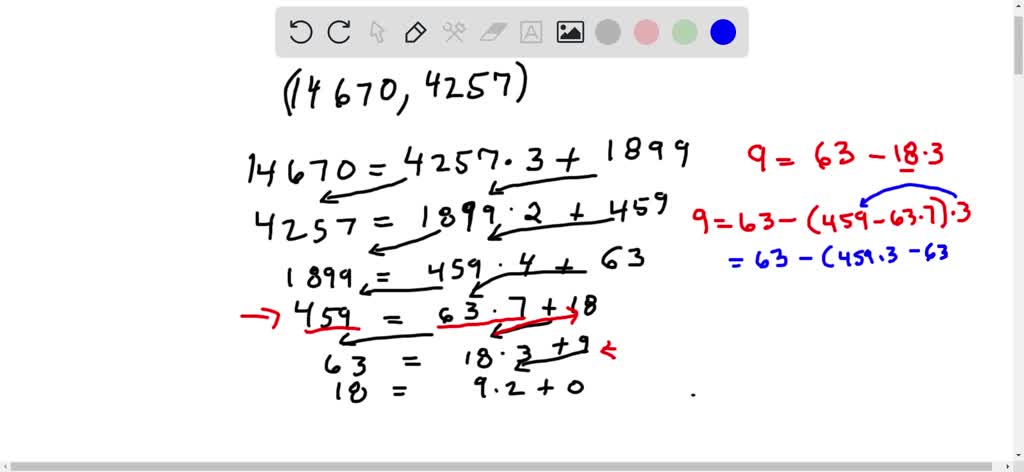 (14670, 4257)
14670 = 4257·3 + 1899
4257 = 1899·2 + 459
1899 = 459·4 + 63
459 = 63·7 + 18
63 = 18·3 + 9
18 = 9·2 + 0
9 = 63 - 18·3
9 = 63 - (459 - 63·7)·3
= 63 - (459·3 - 63